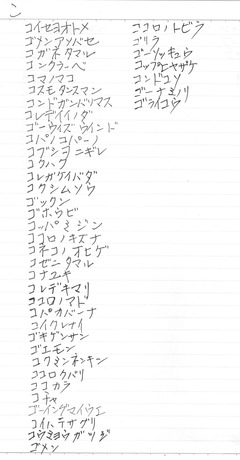 こ
コイセヨオトメ
ゴメンアソバセ
コガネタマル
コンクラーベ
コマノマコ
コスモタンスマン
コンドガンバリマス
コレデイイノダ
ゴーウィズウインド
コパノコパーノ
コブシヲニギレ
コクハク
コレガケイバダ
コクシムソウ
ゴックン
ゴホウビ
コッパミジン
ココロノキズナ
コネコノオヒゲ
コゼニタマル
コナユキ
コレデキマリ
ココロノマド
コパオバーナ
コイクレナイ
ゴキゲンサン
ゴエモン
コクミンネンキン
ココロクバリ
ココカラ
コチャ
ゴーイングマイウエ
コイハテサグリ
コウミョウガツジ
ゴメン
ココロノトビラ
ゴリラ
ゴーリッキュウ
コップヒヤザケ
コンドコソ
ゴーナミノリ
ゴライコウ